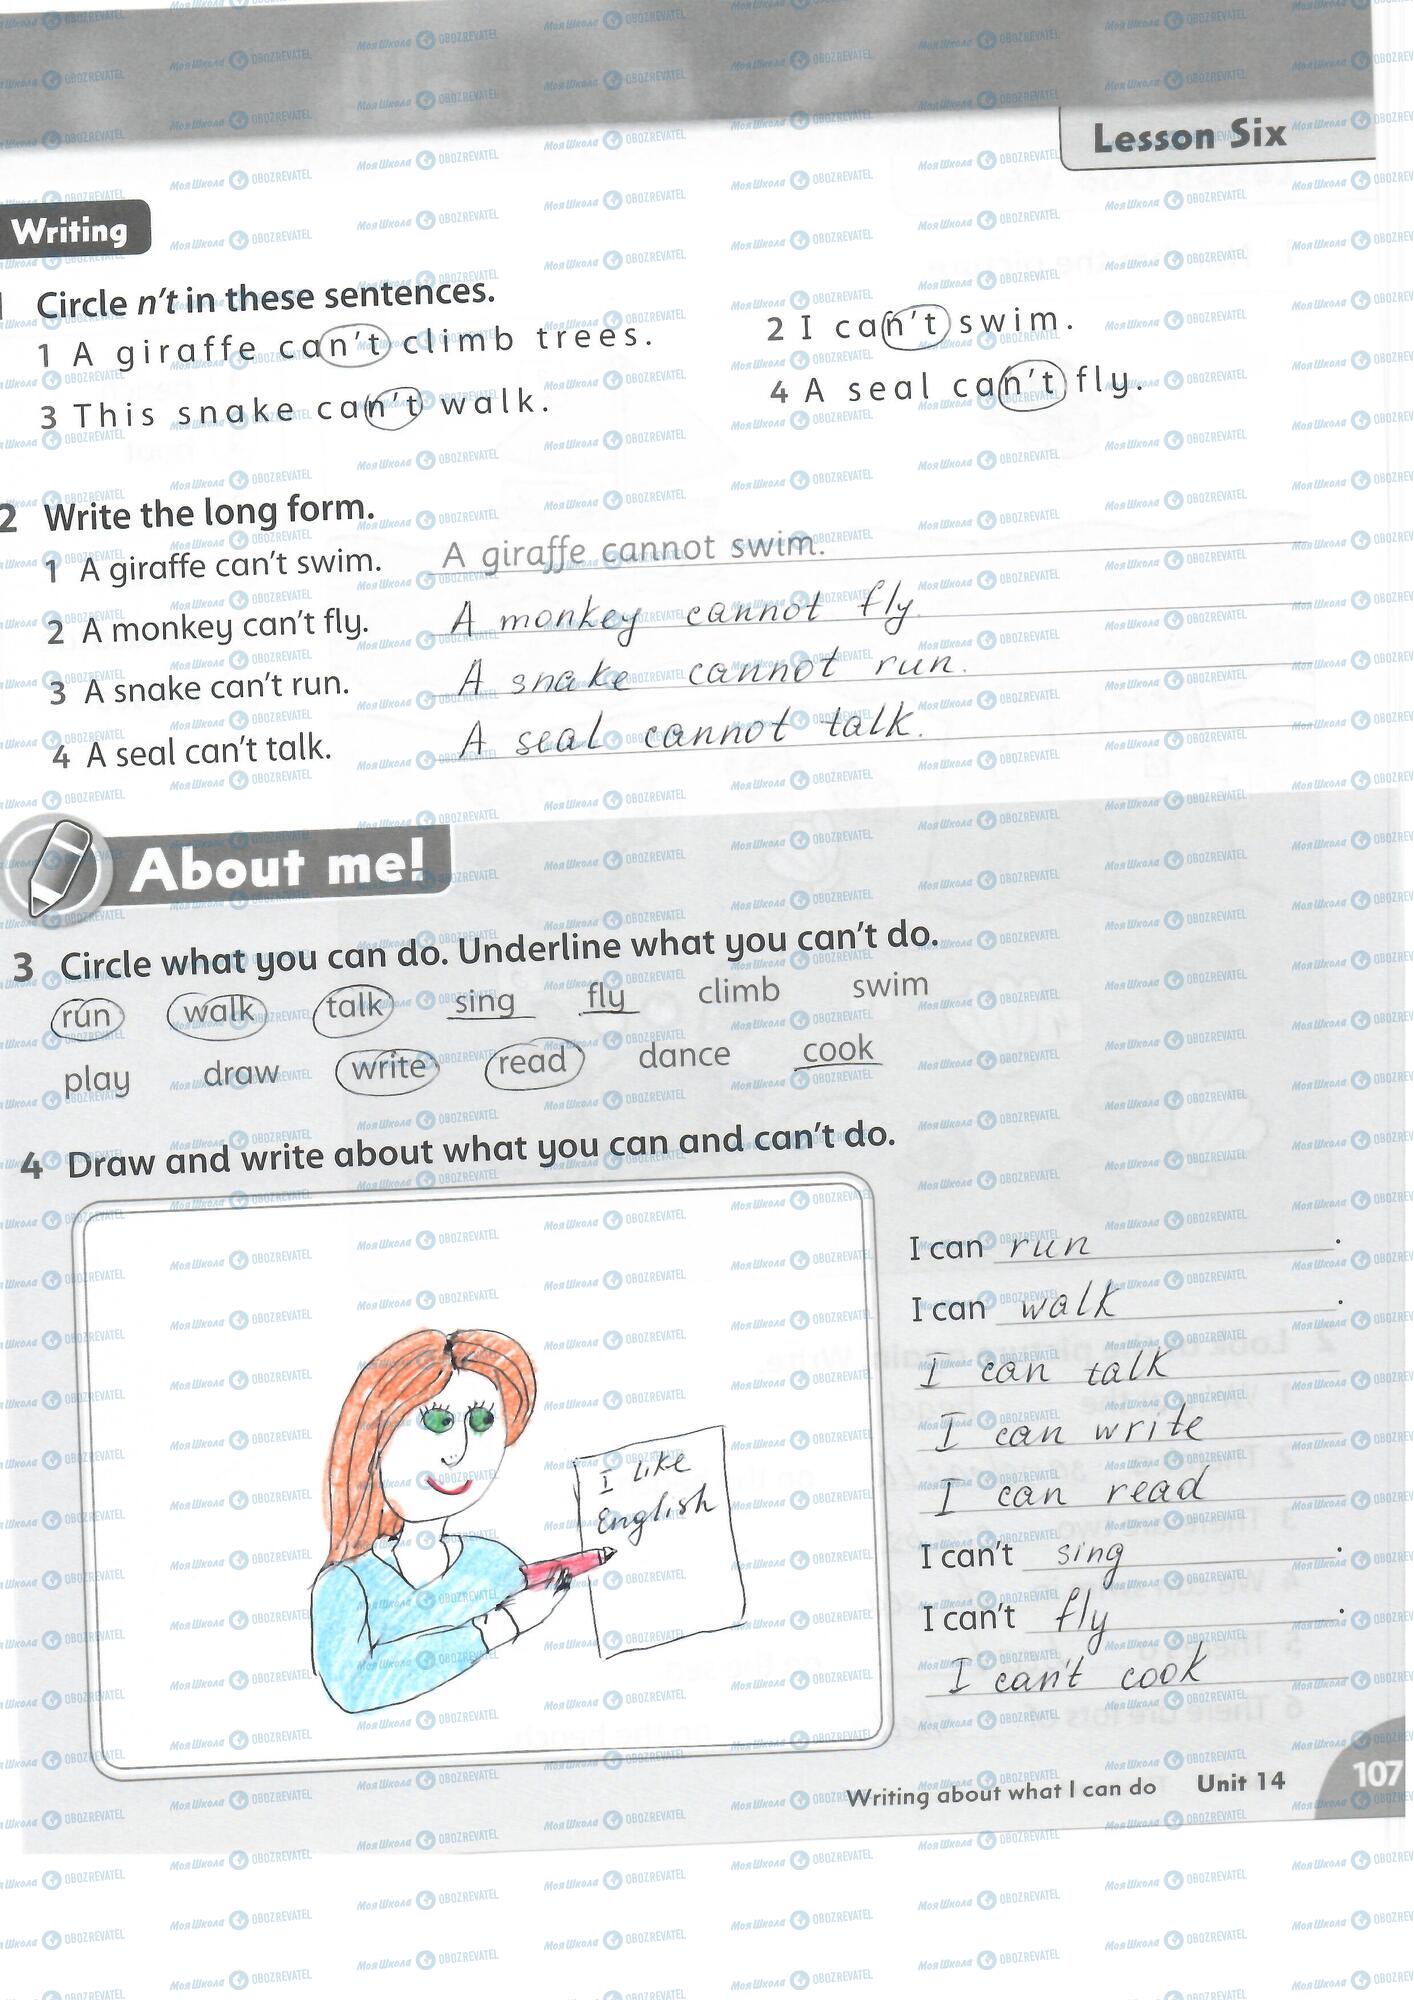 Lesson Six
Writing
1 Circle n't in these sentences.
1 A giraffe can't climb trees.
2 I can't swim.
3 This snake can't walk.
4 A seal can't fly.
2 Write the long form.
1 A giraffe can't swim. A giraffe cannot swim.
2 A monkey can't fly. A monkey cannot fly.
3 A snake can't run. A snake cannot run.
4 A seal can't talk. A seal cannot talk.
About me!
3 Circle what you can do. Underline what you can't do.
run walk talk sing fly climb swim
play draw write read dance cook
4 Draw and write about what you can and can't do.
I like
English
I can run.
I can walk.
I can talk
I can write
I can read
I can't sing.
I can't fly.
I can't cook
Writing about what I can do Unit 14 107
Моя Школа OBOZREVATEL